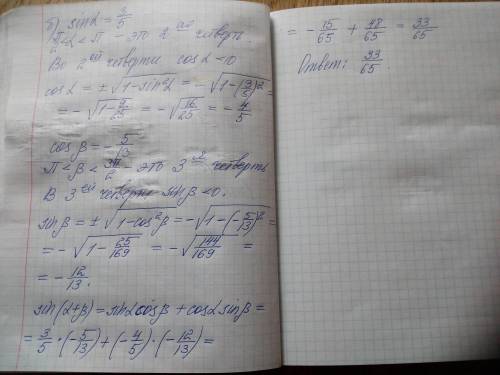 б) sinα = 3/5
π/2 < α < π - это 2 ая четверть
Во 2ой четверти cosα < 0
cosα = ±√(1-sin²α) = -√(1-(3/5)²) =
= -√(1-9/25) = -√(16/25) = -4/5
cosβ = -5/13
π < β < 3π/2 - это 3 я четверть
В 3ей четверти sinβ < 0.
sinβ = ±√(1-cos²β) = -√(1-(-5/13)²) =
= -√(1-25/169) = -√(144/169) =
= -12/13.
sin(α+β) = sinα cosβ + cosα sinβ =
= 3/5 · (-5/13) + (-4/5) · (-12/13) =
= -15/65 + 48/65 = 33/65
Ответ: 33/65.